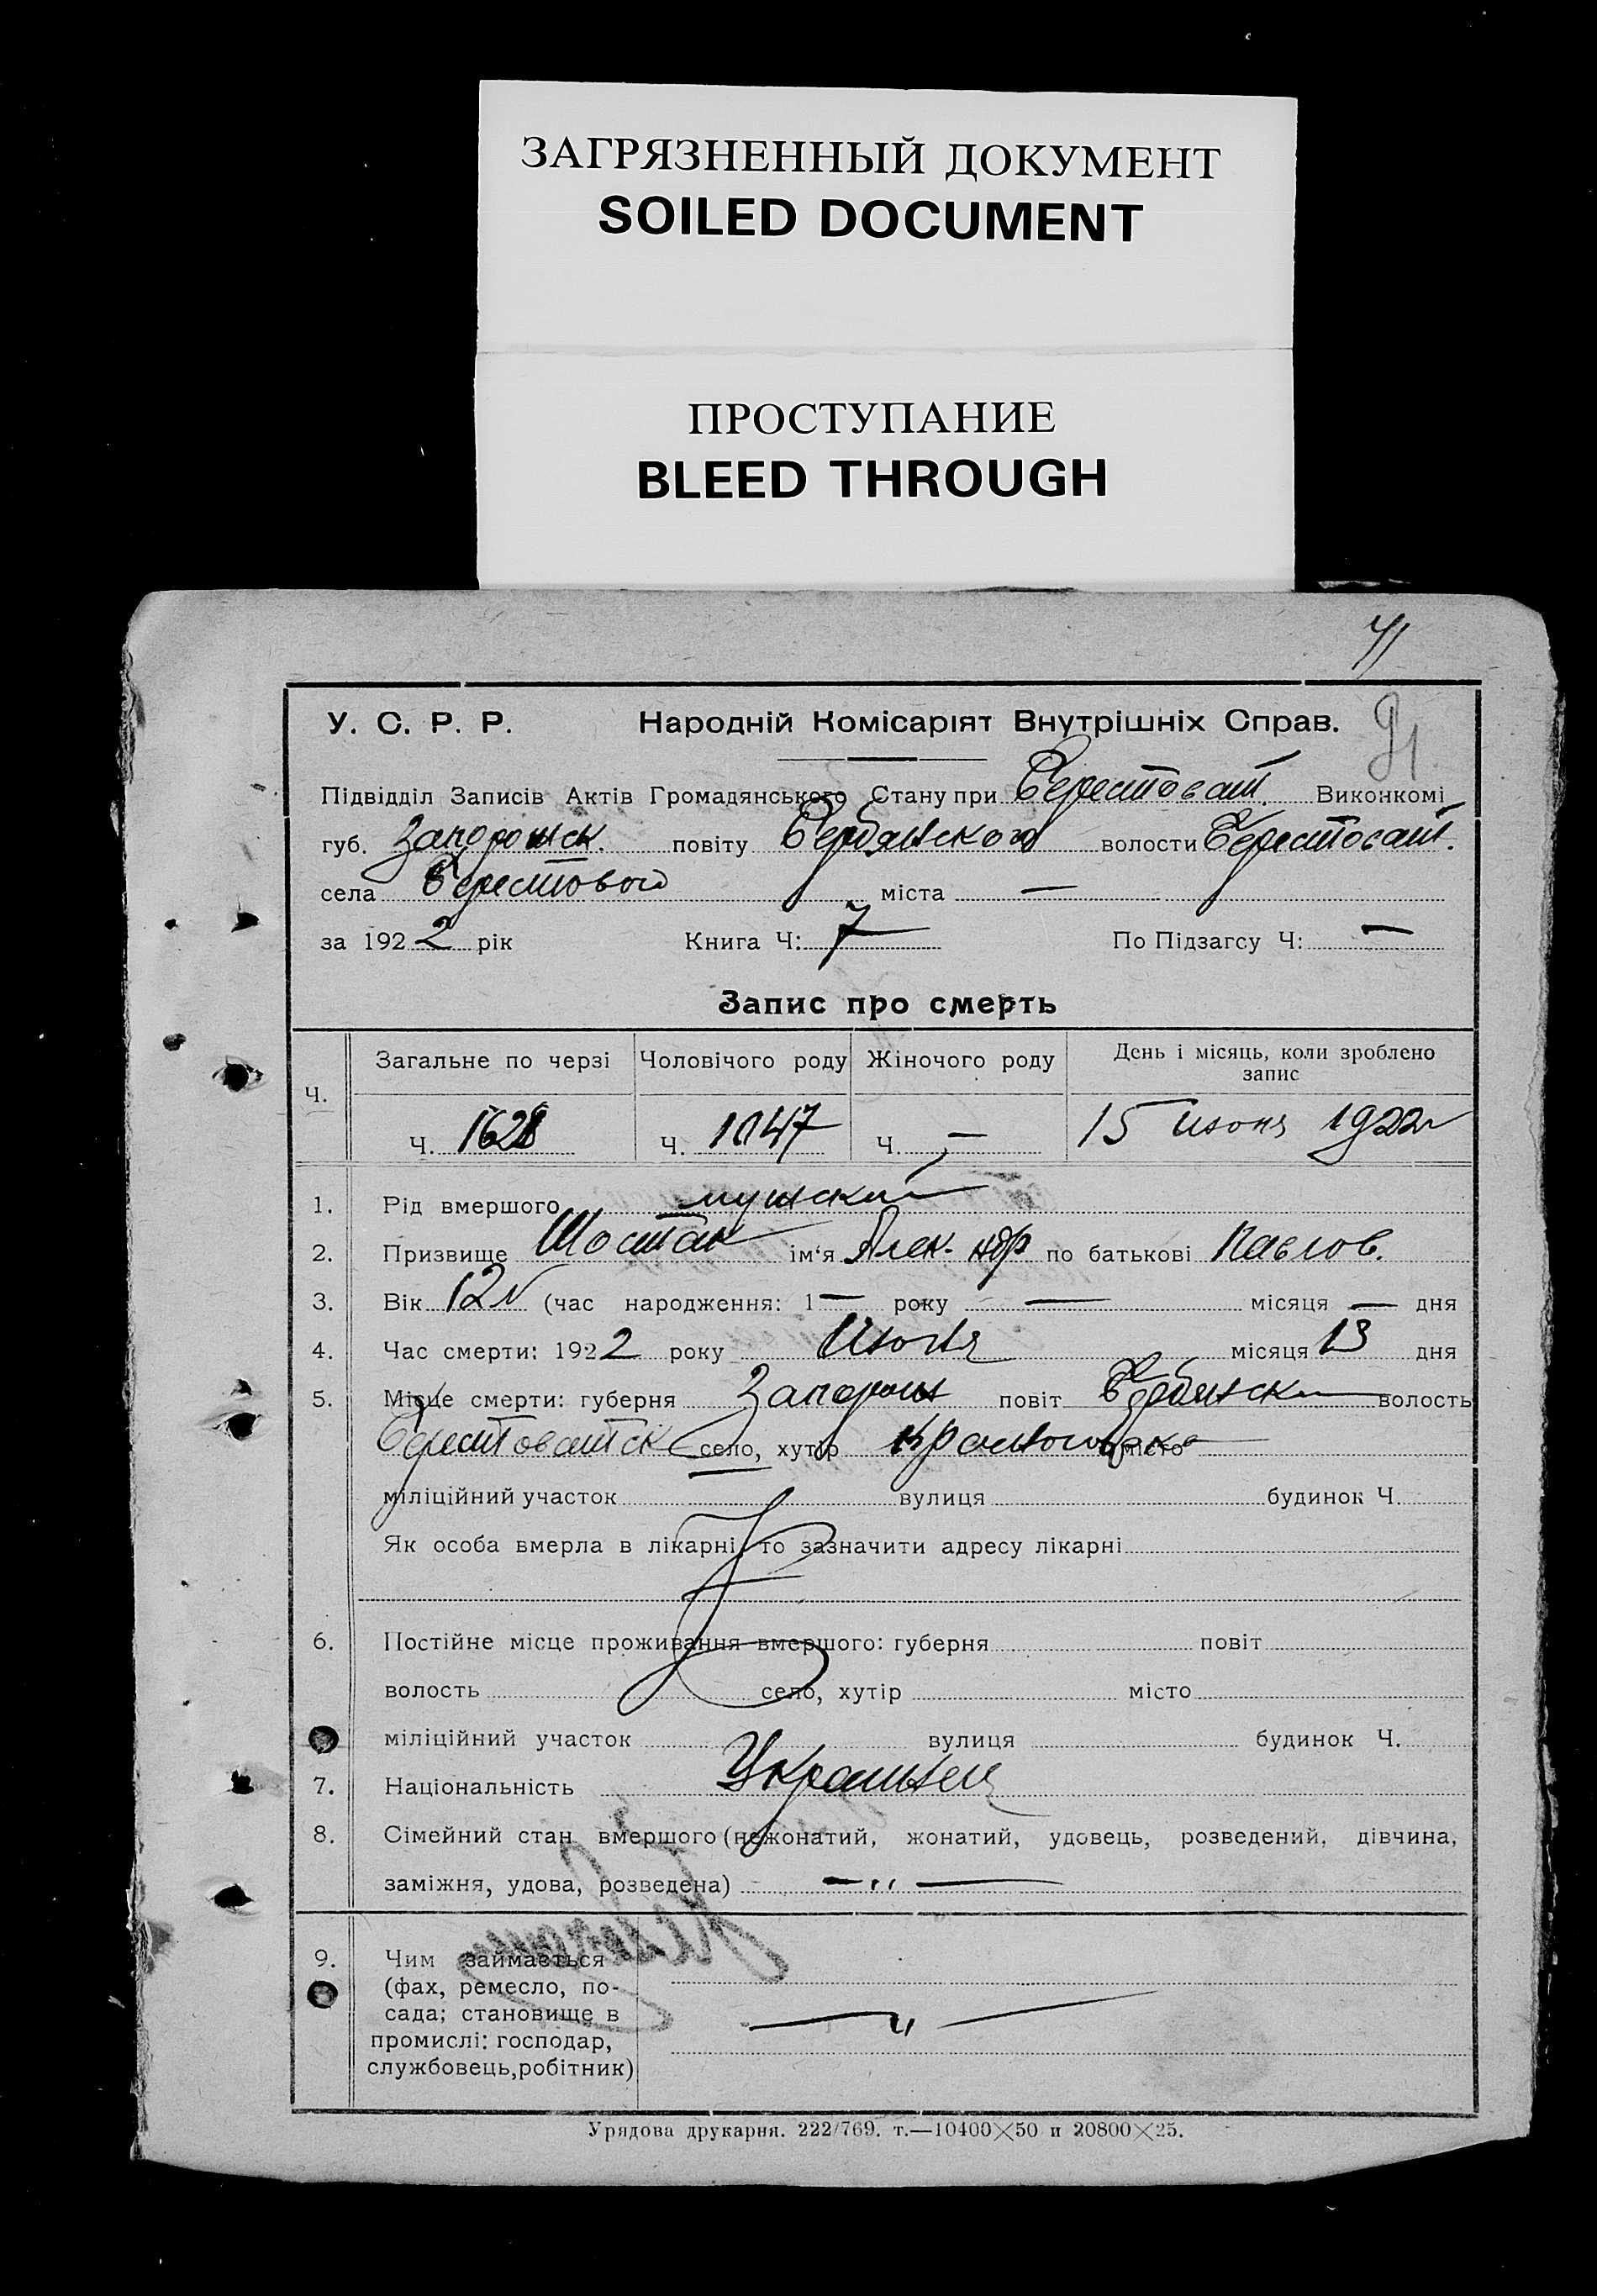 ЗАГРЯЗНЕННЫЙ ДОКУМЕНТ
SOILED DOCUMENT
ПРОСТУПАНИЕ
BLEED THROUGH
91
У. С. Р. Р. Народній Комісаріят Внутрішніх Справ.
Підвідділ Записів Актів Громадянського Стану при Берестоват. Виконкомі
губ. Запорожск. повіту Бердянского волости Берестоват.
села Берестового міста —
за 1922 рік Книга Ч: 7 По Підзагсу Ч: —
Запис про смерть
Ч. Загальне по черзі Чоловічого роду Жіночого роду День і місяць, коли зроблено запис
Ч. 1628 Ч. 1047 Ч. — 15 июня 1922г
1. Рід вмершого мужский
2. Призвище Шостак ім‘я Алек-ндр по батькові Павлов.
3. Вік 12 (час народження: 1— року — місяця — дня
4. Час смерти: 1922 року Июня місяця 13 дня
5. Місце смерти: губерня Запорож повіт Бердянск волость
Берестоватск село, хутір місто
міліційний участок вулиця будинок Ч.
Як особа вмерла в лікарні, то зазначити адресу лікарні
6. Постійне місце проживання вмершого: губерня повіт
волость село, хутір місто
міліційний участок вулиця будинок Ч.
7. Національність Украинец
8. Сімейний стан вмершого (нежонатий, жонатий, удовець, розведений, дівчина,
заміжня, удова, розведена) — „ —
9. Чим займається
(фах, ремесло, по-
сада; становище в
промислі: господар,
службовець, робітник)
— „ —
Урядова друкарня. 222/769. т.—10400×50 и 20800×25.